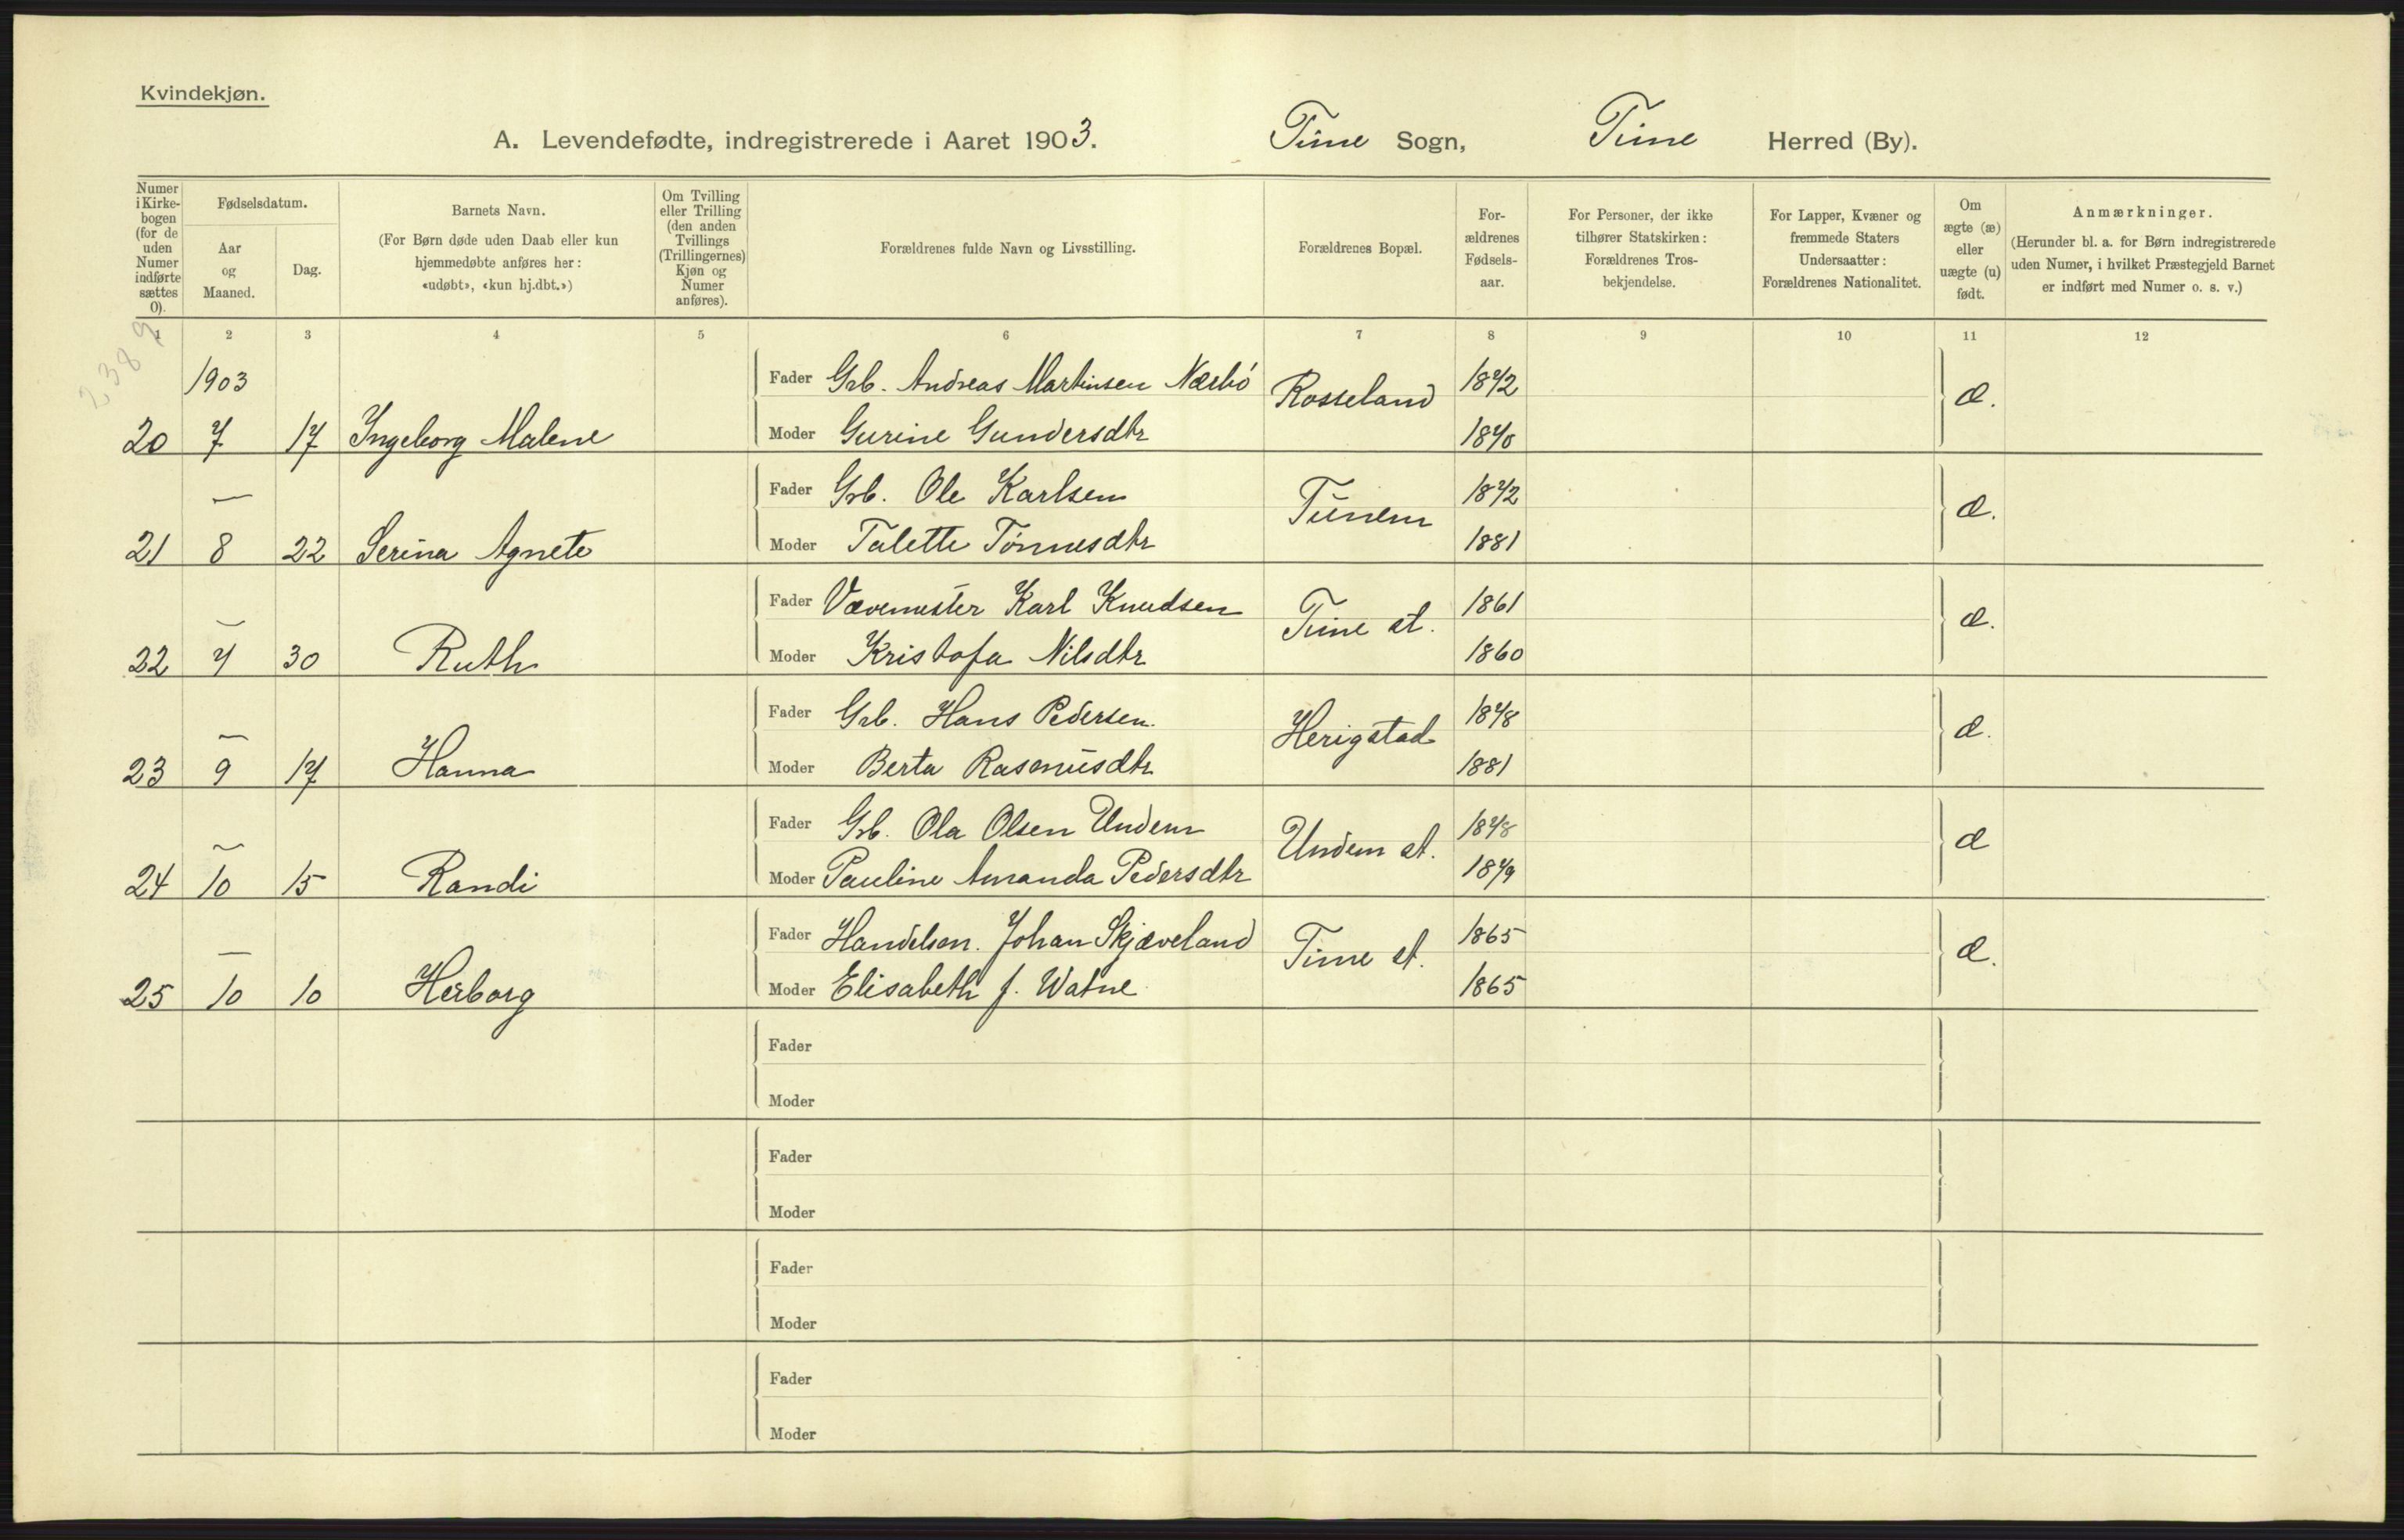 Kvindekjøn.
A. Levendefødte, indregistrerede i Aaret 1903. Time Sogn, Time Herred (By).
Numer i Kirkebogen (for de uden Numer indførte sættes 0). Fødselsdatum. Aar og Maaned. Dag. Barnets Navn. (For Børn døde uden Daab eller kun hjemmedøbte anføres her: «udøbt», «kun hj.dbt.») Om Tvilling eller Trilling (den anden Tvillings (Trillingernes) Kjøn og Numer anføres). Forældrenes fulde Navn og Livsstilling. Forældrenes Bopæl. Forældrenes Fødselsaar. For Personer, der ikke tilhører Statskirken: Forældrenes Trosbekjendelse. For Lapper, Kvæner og fremmede Staters Undersaatter: Forældrenes Nationalitet. Om ægte (æ) eller uægte (u) født. Anmærkninger. (Herunder bl. a. for Børn indregistrerede uden Numer, i hvilket Præstegjeld Barnet er indført med Numer o. s. v.)
1 2 3 4 5 6 7 8 9 10 11 12
2389
1903 Fader Grb. Andreas Martinsen Nærbö Rosseland 1872 æ.
20 7 17 Ingeborg Malene Moder Gurine Gundersdtr 1870
— Fader Grb. Ole Karlsen Tunem 1872 æ.
21 8 22 Serina Agnete Moder Talette Tönnesdtr 1881
— Fader Vævemester Karl Knudsen Time st. 1861 æ.
22 7 30 Ruth Moder Kristofa Nilsdtr 1860
— Fader Grb. Hans Pedersen Herigstad 1878 æ.
23 9 17 Hanna Moder Berta Rasmusdtr 1881
— Fader Grb. Ola Olsen Undem Undem st. 1878 æ
24 10 15 Randi Moder Pauline Amanda Pedersdtr 1879
— Fader Handelsm. Johan Skjæveland Time st. 1865 æ.
25 10 10 Herborg Moder Elisabeth f. Watne 1865
Fader
Moder
Fader
Moder
Fader
Moder
Fader
Moder